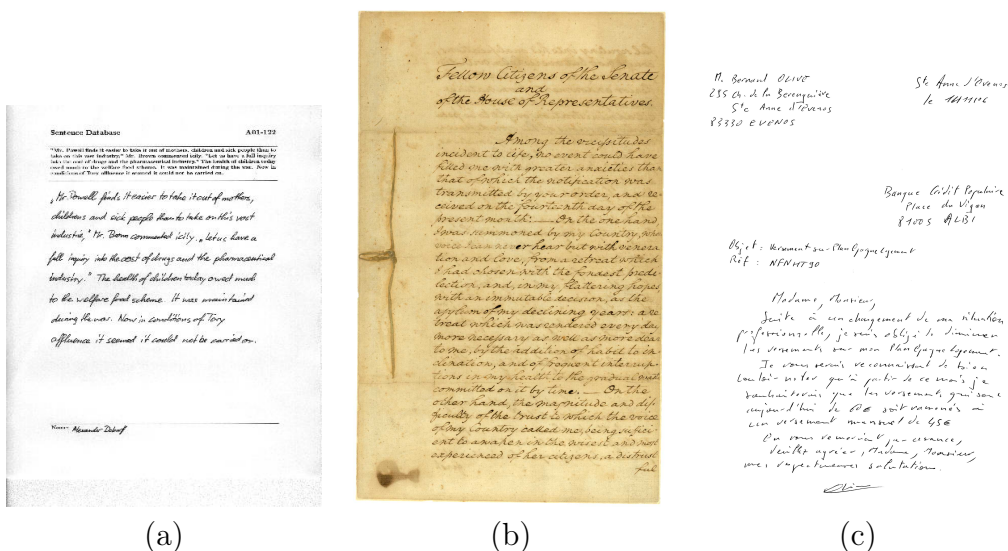 Sentence Database A01-122
"Mr. Powell finds it easier to take it out of mothers, children and sick people than to
take on this vast industry," Mr. Brown commented icily. "Let us have a full inquiry
into the cost of drugs and the pharmaceutical industry." The health of children today
owed much to the welfare food scheme. It was maintained during the war. Now in
conditions of Tory affluence it seemed it could not be carried on.
"Mr. Powell finds it easier to take it out of mothers,
childrens and sick people than to take on this vast
industrie," Mr. Brown commented icily. "Let us have a
full inquiry into the cost of drugs and the pharmaceutical
industry." The health of children today owed much
to the welfare food scheme. It was maintained
during the war. Now in conditions of Tory
affluence it seemed it could not be carried on.
Name:
(a)
Fellow Citizens of the Senate
and
of the House of Representatives.
Among the vicissitudes
incident to life, no event could have
filled me with greater anxieties than
that of which the notification was
transmitted by your order, and re
ceived on the fourteenth day of the
present month: On the one hand
I was summoned by my Country, whose
voice I can never hear but with venera
tion and love, from a retreat which
I had chosen with the fondest predi
lection, and, in my flattering hopes
with an immutable decision, as the
asylum of my declining years: a re
treat which was rendered every day
more necessary as well as more dear
to me, by the addition of habit to in
clination, and of frequent interrup
tions in my health to the gradual waste
committed on it by time. On the
other hand, the magnitude and dif
ficulty of the trust to which the voice
of my Country called me, being suffici
ent to awaken in the wisest and most
experienced of her citizens, a distrust
ful
(b)
M. Bernard OLIVE
235 Ch. de la Berenguière
Ste Anne d'Evenos
83330 EVENOS
Ste Anne d'Evenos
le
Banque Crédit Populaire
Place du Vigan
81003 ALBI
Objet : Versement sur Plan Epargne Logement
Réf : NFNHT90
Madame, Monsieur,
Suite à un changement de ma situation
professionnelle, je suis obligé de diminuer
les versements sur mon Plan Epargne Logement.
Je vous serais reconnaissant de bien
vouloir noter qu'à partir de ce mois je
souhaiterais que les versements qui sont
aujourd'hui de soit ramenés à
un versement mensuel de 45€
En vous remerciant par avance,
veuillez agréer, Madame, Monsieur,
mes respectueuses salutations.
(c)